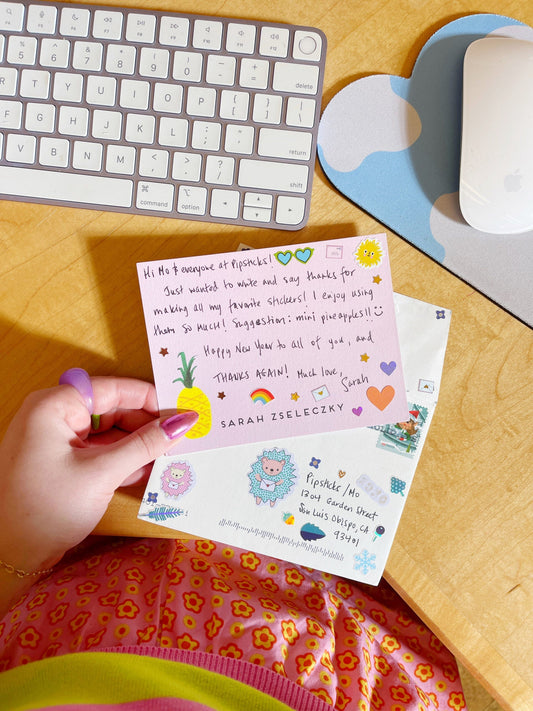 Hi Mo & everyone at Pipsticks!
Just wanted to write and say thanks for
making all my favorite stickers! I enjoy using
them so much! Suggestion: mini pineapples!!
Happy New Year to all of you, and
THANKS AGAIN! Much love,
Sarah
SARAH ZSELECZKY
Pipsticks/Mo
1304 Garden Street
San Luis Obispo, CA
93401
delete
return
shift
command
option